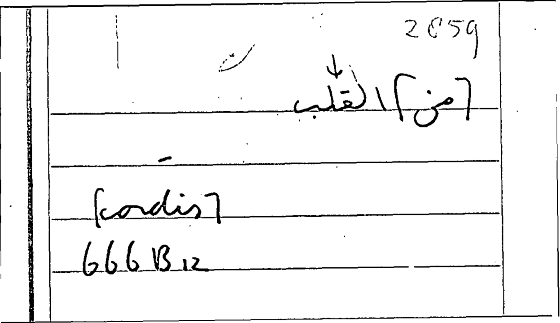 2859
[من] القلب
[cordis]
666 B 12